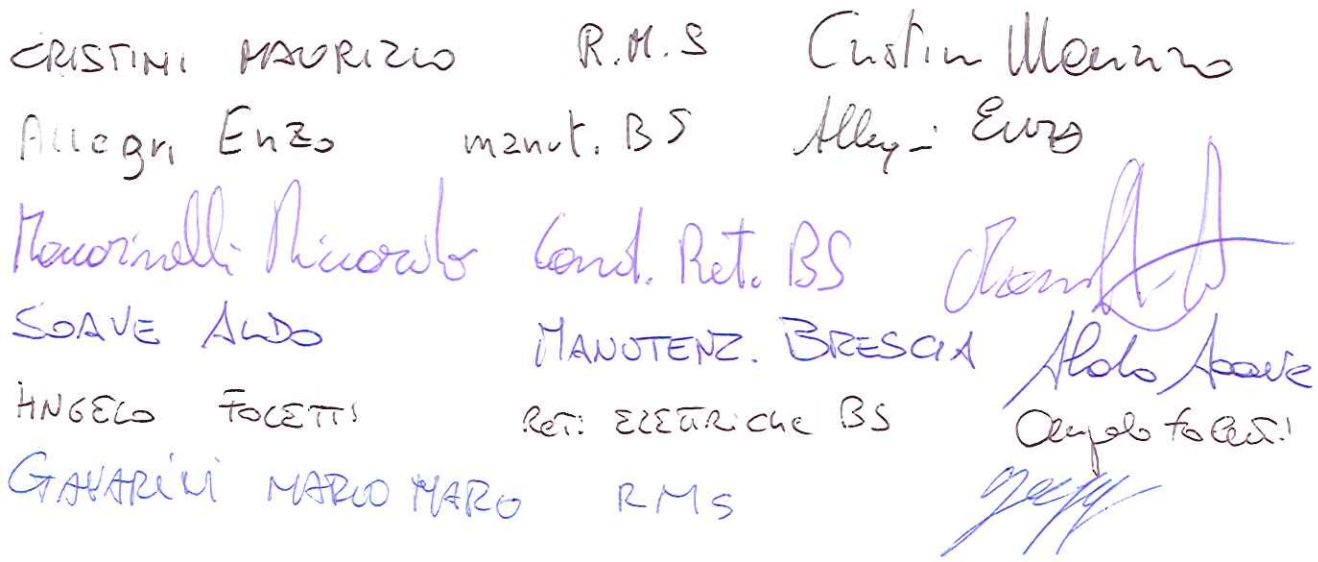 CRISTINI MAURIZIO R.M.S Cristini Maurizio
Allegri Enzo manut. BS Allegri Enzo
Maccarinelli Riccardo Cond. Ret. BS
SOAVE ALDO MANUTENZ. BRESCIA Aldo Soave
ANGELO FOLETTI RETI ELETTRICHE BS Angelo Foletti
GAVARINI MARCO RMS